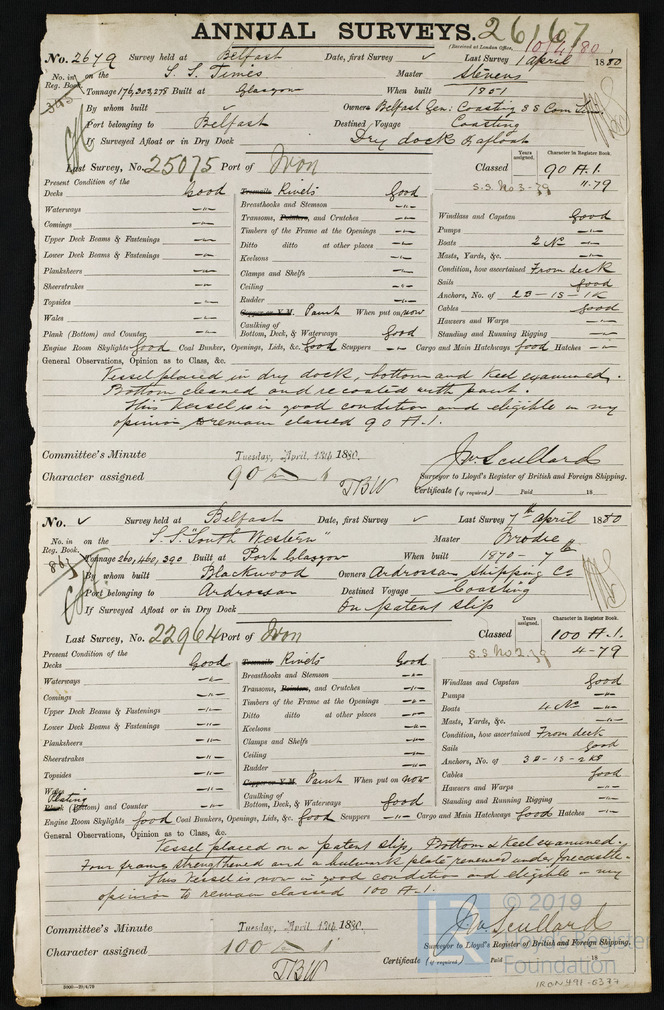 ANNUAL SURVEYS. 26167
(Received at London Office, 10/4/80)
No. 2679 Survey held at Belfast Date, first Survey ✓ Last Survey 1 April 1880
No. in Reg. Book. on the S. S. Times Master Stevens
Tonnage 176,303,278 Built at Glasgow When built 1851
By whom built ✓ Owners Belfast Gen: Coasting S S Com Lim.
Port belonging to Belfast Destined Voyage Coasting
If Surveyed Afloat or in Dry Dock Dry dock & afloat
Last Survey, No. 25075 Port of Iron
Years assigned. Character in Register Book.
Classed 90 A.1.
S.S. No 3-79 11-79
Present Condition of the
Decks Good Treenails Rivets Good
Waterways -"- Breasthooks and Stemson -"-
Comings -"- Transoms, Pointers, and Crutches -"- Windlass and Capstan Good
Upper Deck Beams & Fastenings -"- Timbers of the Frame at the Openings -"- Pumps -"-
Lower Deck Beams & Fastenings -"- Ditto ditto at other places -"- Boats 2 No -"-
Planksheers -"- Keelsons -"- Masts, Yards, &c. -"-
Sheerstrakes -"- Clamps and Shelfs -"- Condition, how ascertained From deck
Topsides -"- Ceiling -"- Sails Good
Wales -"- Rudder -"- Anchors, No. of 2B-1S-1K
Copper or Y.M. Paint When put on now Cables Good
Plank (Bottom) and Counter -"- Caulking of Bottom, Deck, & Waterways Good Hawsers and Warps -"-
Standing and Running Rigging -"-
Engine Room Skylights Good Coal Bunker, Openings, Lids, &c. Good Scuppers -"- Cargo and Main Hatchways Good Hatches -"-
General Observations, Opinion as to Class, &c.
Vessel placed in dry dock, bottom and Keel examined.
Bottom cleaned and recoated with paint.
This Vessel is in good condition and eligible in my
opinion to remain classed 90 A.1.
Committee's Minute Tuesday, April, 13th 1880. J W Scullard
Character assigned 90 A 1 Surveyor to Lloyd's Register of British and Foreign Shipping.
TBW Certificate (if required) Paid 18
No. ✓ Survey held at Belfast Date, first Survey ✓ Last Survey 7th April 1880
No. in Reg. Book. on the S.S. "South Western" Master Brodie
Tonnage 260,460,390 Built at Port Glasgow When built 1870 - 7
By whom built Blackwood Owners Ardrossan Shipping Co
Port belonging to Ardrossan Destined Voyage Coasting
If Surveyed Afloat or in Dry Dock On patent slip
Last Survey, No. 22964 Port of Iron
Years assigned. Character in Register Book.
Classed 100 A.1.
S.S. No 2-79 4-79
Present Condition of the
Decks Good Treenails Rivets Good
Waterways -"- Breasthooks and Stemson -"-
Comings -"- Transoms, Pointers, and Crutches -"- Windlass and Capstan Good
Upper Deck Beams & Fastenings -"- Timbers of the Frame at the Openings -"- Pumps -"-
Lower Deck Beams & Fastenings -"- Ditto ditto at other places -"- Boats 4 No -"-
Planksheers -"- Keelsons -"- Masts, Yards, &c. -"-
Sheerstrakes -"- Clamps and Shelfs -"- Condition, how ascertained From deck
Topsides -"- Ceiling -"- Sails Good
Wales Rudder -"- Anchors, No. of 3B-1S-2KS
Plating Copper or Y.M. Paint When put on now Cables Good
Plank (Bottom) and Counter -"- Caulking of Bottom, Deck, & Waterways Good Hawsers and Warps -"-
Standing and Running Rigging -"-
Engine Room Skylights Good Coal Bunkers, Openings, Lids, &c. Good Scuppers -"- Cargo and Main Hatchways Good Hatches -"-
General Observations, Opinion as to Class, &c.
Vessel placed on a patent slip, Bottom & Keel examined.
Four frames strengthened and a bulwark plate renewed under forecastle.
This Vessel is now in good condition and eligible in my
opinion to remain classed 100 A.1.
Committee's Minute Tuesday, April, 13th 1880. J W Scullard
Character assigned 100 A 1 Surveyor to Lloyd's Register of British and Foreign Shipping,
TBW Certificate (if required) Paid 18
© 2019
Lloyd's Register
Foundation
IRON491-0377